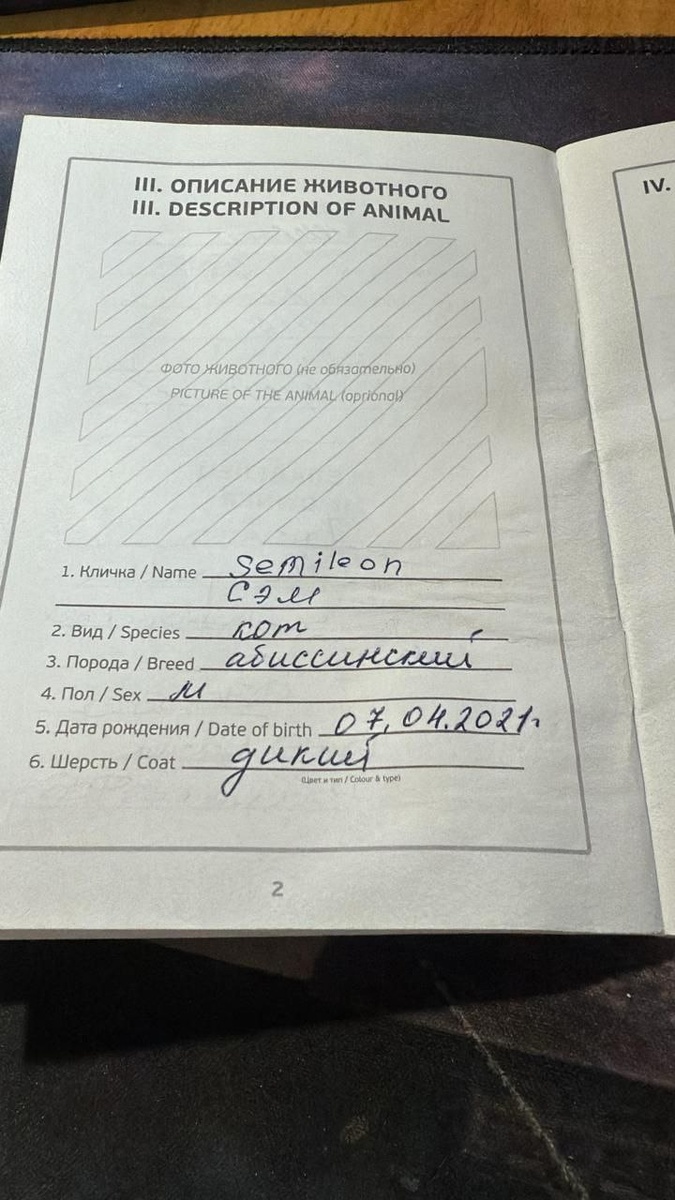 III. ОПИСАНИЕ ЖИВОТНОГО
III. DESCRIPTION OF ANIMAL
ФОТО ЖИВОТНОГО (не обязательно)
PICTURE OF THE ANIMAL (oprional)
1. Кличка / Name Semileon
Сэм
2. Вид / Species кот
3. Порода / Breed абиссинский
4. Пол / Sex М
5. Дата рождения / Date of birth 07.04.2021г
6. Шерсть / Coat дикий
(Цвет и тип / Colour & type)
2
IV.